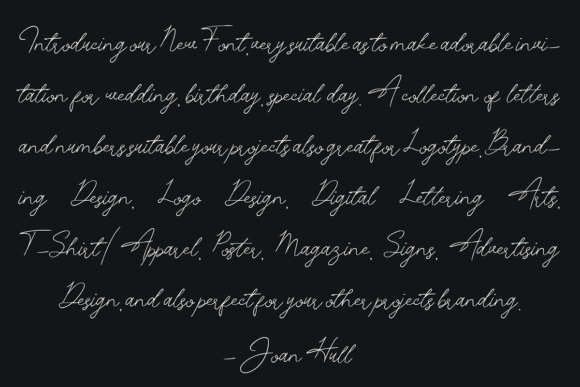 Introducing our New Font, very suitable as to make adorable invi-
tation for wedding, birthday, special day. A collection of letters
and numbers suitable your projects also great for Logotype, Brand-
ing Design, Logo Design, Digital Lettering Arts,
T-Shirt/Apparel, Poster, Magazine, Signs, Advertising
Design, and also perfect for your other projects branding.
- Joan Hull